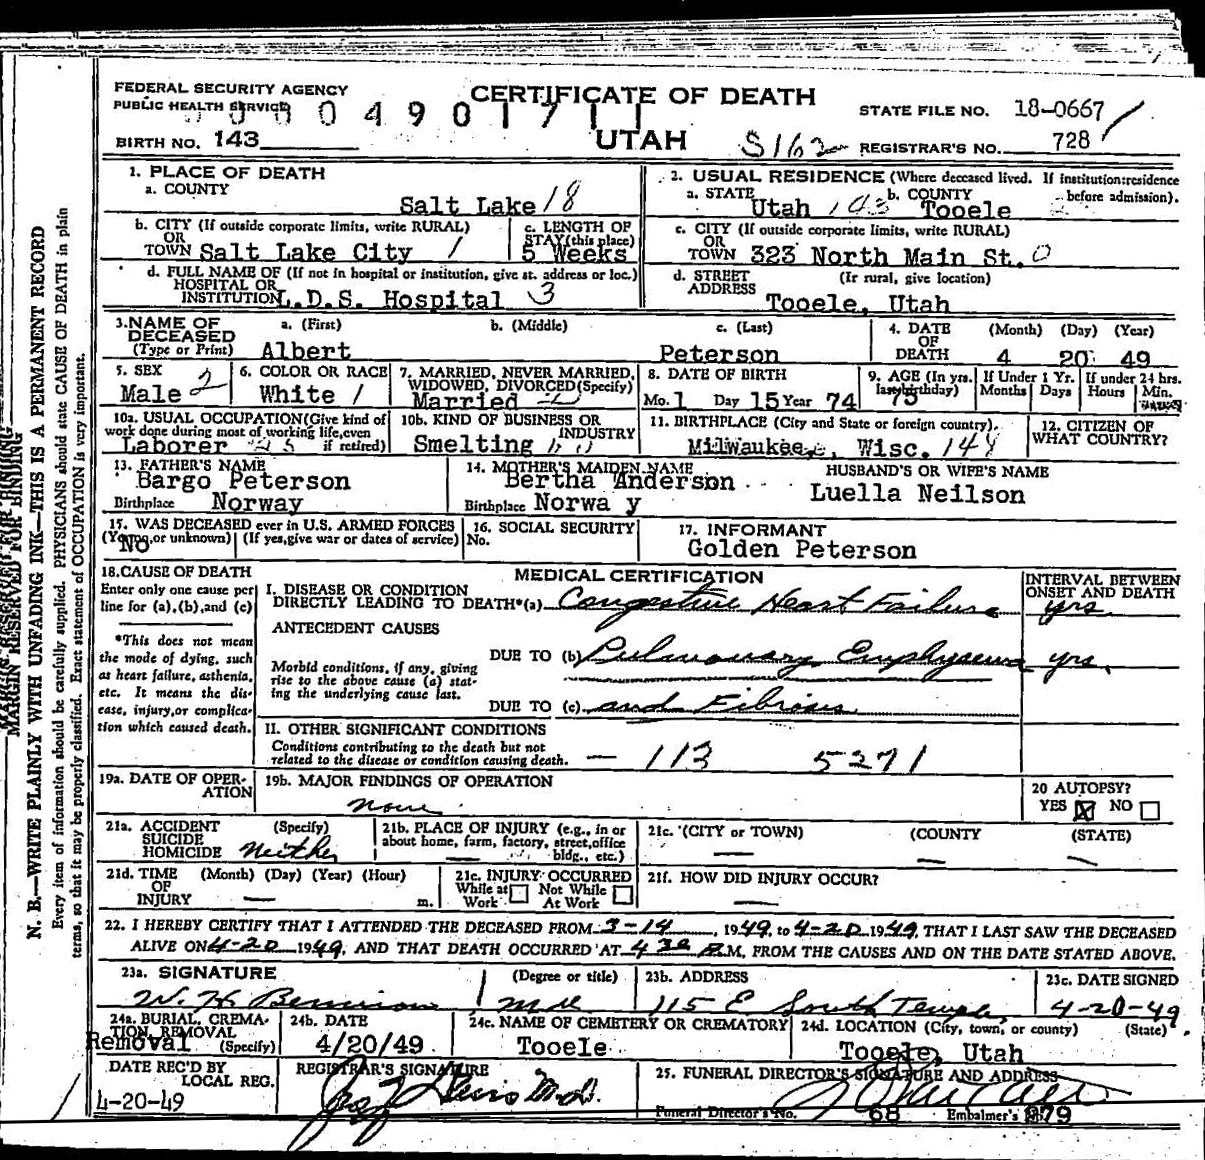 FEDERAL SECURITY AGENCY
PUBLIC HEALTH SERVICE
CERTIFICATE OF DEATH
STATE FILE NO. 18-0667
0 4 9 0 1 7 1 1
BIRTH NO. 143
UTAH
S162
REGISTRAR'S NO. 728
MARGIN RESERVED FOR BINDING
N. B.—WRITE PLAINLY WITH UNFADING INK—THIS IS A PERMANENT RECORD
Every item of information should be carefully supplied. PHYSICIANS should state CAUSE OF DEATH in plain
terms, so that it may be properly classified. Exact statement of OCCUPATION is very important.
1. PLACE OF DEATH
a. COUNTY
Salt Lake 18
2. USUAL RESIDENCE (Where deceased lived. If institution: residence
before admission).
a. STATE Utah 143 b. COUNTY Tooele
b. CITY (If outside corporate limits, write RURAL)
OR
TOWN Salt Lake City 1
c. LENGTH OF
STAY (this place)
5 Weeks
c. CITY (If outside corporate limits, write RURAL)
OR
TOWN 323 North Main St. 0
d. FULL NAME OF (If not in hospital or institution, give st. address or loc.)
HOSPITAL OR
INSTITUTION L.D.S. Hospital 3
d. STREET (If rural, give location)
ADDRESS
Tooele, Utah
3. NAME OF
DECEASED
(Type or Print)
a. (First) b. (Middle) c. (Last)
Albert Peterson
4. DATE
OF
DEATH
(Month) (Day) (Year)
4 20 49
5. SEX
Male 2
6. COLOR OR RACE
White 1
7. MARRIED, NEVER MARRIED,
WIDOWED, DIVORCED (Specify)
Married
8. DATE OF BIRTH
Mo. 1 Day 15 Year 74
9. AGE (In yrs.
last birthday)
75
If Under 1 Yr.
Months Days
If under 24 hrs.
Hours Min.
10a. USUAL OCCUPATION (Give kind of
work done during most of working life, even
if retired)
Laborer
10b. KIND OF BUSINESS OR
INDUSTRY
Smelting
11. BIRTHPLACE (City and State or foreign country).
Milwaukee, Wisc. 148
12. CITIZEN OF
WHAT COUNTRY?
13. FATHER'S NAME
Bargo Peterson
Birthplace Norway
14. MOTHER'S MAIDEN NAME
Bertha Anderson
Birthplace Norwa y
HUSBAND'S OR WIFE'S NAME
Luella Neilson
15. WAS DECEASED ever in U.S. ARMED FORCES
(Yes, no, or unknown) (If yes, give war or dates of service)
No
16. SOCIAL SECURITY
No.
17. INFORMANT
Golden Peterson
18. CAUSE OF DEATH
Enter only one cause per
line for (a), (b), and (c)
*This does not mean
the mode of dying, such
as heart failure, asthenia,
etc. It means the dis-
ease, injury, or complica-
tion which caused death.
MEDICAL CERTIFICATION
INTERVAL BETWEEN
ONSET AND DEATH
I. DISEASE OR CONDITION
DIRECTLY LEADING TO DEATH*(a) Congestive Heart Failure yrs.
ANTECEDENT CAUSES
Morbid conditions, if any, giving
rise to the above cause (a) stat-
ing the underlying cause last.
DUE TO (b) Pulmonary Emphysema yrs.
DUE TO (c) and Fibrosis
II. OTHER SIGNIFICANT CONDITIONS
Conditions contributing to the death but not
related to the disease or condition causing death.
— 113 5271
19a. DATE OF OPER-
ATION
19b. MAJOR FINDINGS OF OPERATION
none
20 AUTOPSY?
YES NO
21a. ACCIDENT (Specify)
SUICIDE
HOMICIDE Neither
21b. PLACE OF INJURY (e.g., in or
about home, farm, factory, street, office
bldg., etc.) —
21c. (CITY or TOWN) (COUNTY) (STATE)
— — —
21d. TIME (Month) (Day) (Year) (Hour)
OF
INJURY — m.
21e. INJURY OCCURRED
While at Not While
Work At Work
21f. HOW DID INJURY OCCUR?
—
22. I HEREBY CERTIFY THAT I ATTENDED THE DECEASED FROM 3-14, 1949, to 4-20 1949, THAT I LAST SAW THE DECEASED
ALIVE ON 4-20 1949, AND THAT DEATH OCCURRED AT 4 30 P.M, FROM THE CAUSES AND ON THE DATE STATED ABOVE.
23a. SIGNATURE (Degree or title)
W. H. Bennion MD
23b. ADDRESS
115 E South Temple
23c. DATE SIGNED
4-20-49
24a. BURIAL, CREMA-
TION, REMOVAL
(Specify)
Removal
24b. DATE
4/20/49
24c. NAME OF CEMETERY OR CREMATORY
Tooele
24d. LOCATION (City, town, or county) (State)
Tooele, Utah
DATE REC'D BY
LOCAL REG.
4-20-49
REGISTRAR'S SIGNATURE
M.D.
25. FUNERAL DIRECTOR'S SIGNATURE AND ADDRESS
Funeral Director's No. 68 Embalmer's No. 879